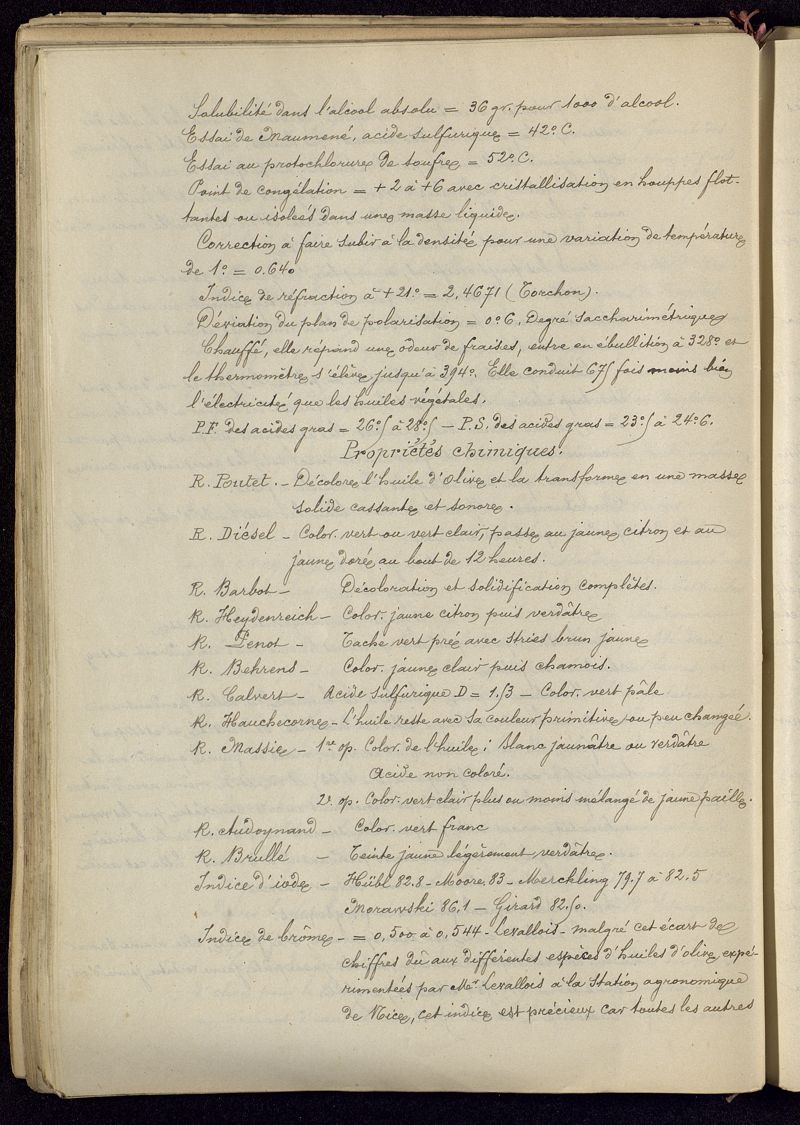 Solubilité dans l'alcool absolu = 36 gr. pour 1000 d'alcool.
Essai de Maumené, acide sulfurique = 42° C.
Essai au protochlorure de soufre = 52° C.
Point de congélation = + 2 à + 6 avec cristallisation en houppes flot-
tantes ou isoleés dans une masse liquide.
Correction à faire subir à la densité pour une variation de température
de 1° = 0.640
Indice de réfraction à + 21° = 2,4671 (Torchon).
Déviation du plan de polarisation = 0° 6. Degré saccharimétrique
Chauffé, elle répand une odeur de fraises, entre en ébullition à 328° et
le thermomètre s'élève jusqu'à 394°. Elle conduit 675 fois moins bien
l'électricité que les huiles végétales.
P.F. des acides gras = 26°5 à 28°5 — P.S. des acides gras = 23°5 à 24°6.
Propriétés chimiques.
R. Poutet. — Décolore l'huile d'olive et la transforme en une masse
solide cassante et sonore.
R. Diésel — Color. vert ou vert clair, passe au jaune citron et au
jaune doré au bout de 12 heures.
R. Barbot — Décoloration et solidification complètes.
R. Heydenreich — Color. jaune citron puis verdâtre
R. Penot — Tache vert pré avec stries brun jaune
R. Behrens — Color. jaune clair puis chamois.
R. Calvert — Acide sulfurique D = 1.53 — Color. vert pâle
R. Hauchecorne — L'huile reste avec sa couleur primitive ou peu changeé.
R. Massie — 1re op. Color. de l'huile : blanc jaunâtre ou verdâtre
Acide non coloré.
2e. op. Color. vert clair plus ou moins mélangé de jaune paille.
R. Audoynand — Color. vert franc
R. Brullé — Teinte jaune légèrement verdâtre.
Indice d'iode — Hübl 82.8 — Moore. 83 — Merckling 79.7 à 82.5
Morawski 86.1 — Girard 82.50.
Indice de brôme — = 0,500 à 0,544 - Levallois - malgré cet écart de
chiffres dû aux différentes espèces d'huiles d'olive expé-
rimenteés par Mr. Levallois à la Station agronomique
de Nice, cet indice est précieux car toutes les autres